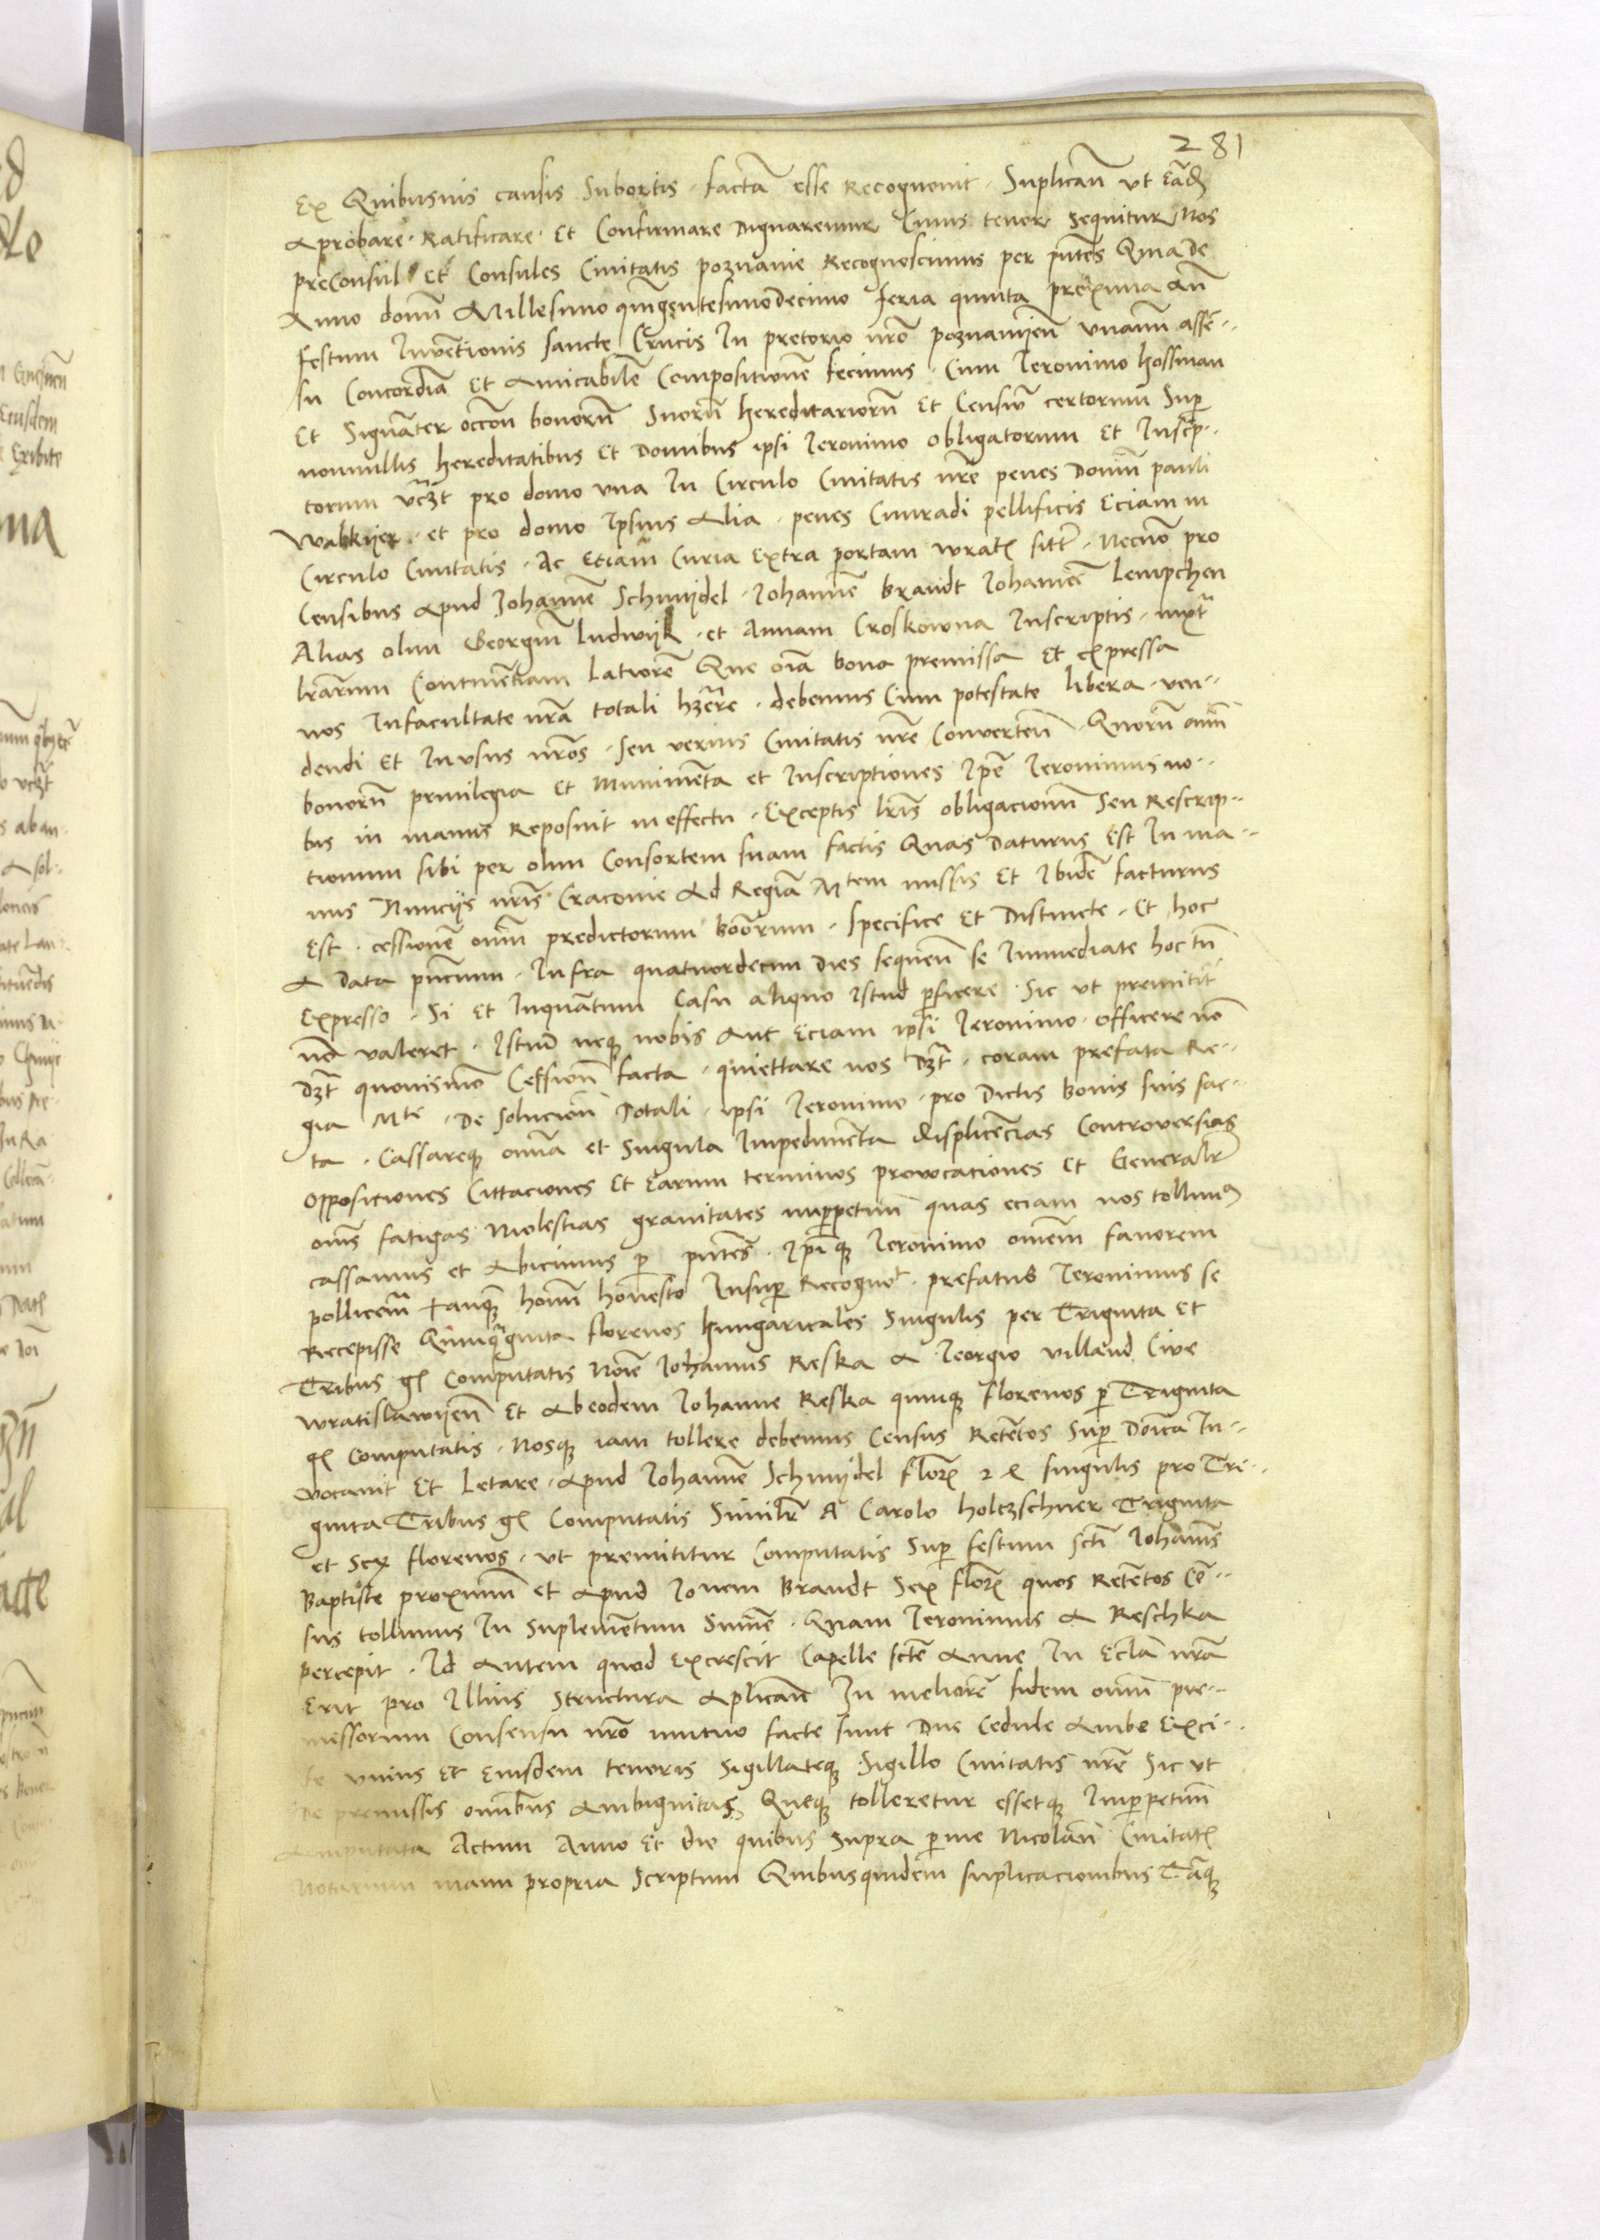 281
Ex Quibusuis causis Subortis. factã esse Recognouit. Suplicañ vt Eãd
Aprobare. Ratificare. et Confirmare Dignaremur Cuius tenor Sequitur Nos
preConsul et Consules Ciuitatis poznanie Recognoscimus per pñtes Quia de
Anno domñ Millesimo quingentesimodecimo feria quinta proxima Añ
festum Inuẽtionis sancte Crucis In pretorio nrõ poznanyeñ vnanim assẽ..
su Concordiã Et Amicabilẽ Compositionẽ fecimus. Cum Jeronimo hoffman
Et Signãter occõne bonorũ Suorũ hereditariorũ Et Censuũ certorum Sup
nonnullis hereditatibus Et Domibus ipsi Jeronimo obligatorum et Inscrip..
torum vcƺt pro domo vna In Circulo Ciuitatis nrẽ penes Domũ pauli
Walkyer. et pro domo Ipsius Alia. penes Cunradi pellificis Eciam in
Circulo Ciuitatis. Ac Etiam Curia Extra portam wratł sitt. Necnõ pro
Censibus Apud Johannẽ Schmydel. Johannẽ Brandt Johannẽ Lempchen
Alias olim Georgiũ Ludwyk. et Annam Croskowna Inscriptis. iuxt
lrãrum Continẽtiam Latiorẽ Que oĩa bona premissa Et expressa
nos Infacultate nrã totali hẽre. debemus Cum potestate libera. ven..
dendi Et In vsus nrõs. seu verius Ciuitatis nrẽ Conuerteñ. Quorũ oiũm
bonorũ priuilegia Et Munimẽta et Inscriptiones Ipẽ Jeronimus no..
bis in manus Reposuit in effectu. Exceptis lrĩs obligacionũ Seu Rescrip..
tionum sibi per olim Consortem suam factis Quas Daturus Est In ma..
nus Nuncys nrĩs Cracouie Ad Regiã Mtem missis Et Ibidẽ facturus
Est. cessionẽ oniũ predictorum boõrum. specifice Et Distincte. Et hoc
A Data pñcium. Infra quatuordecim Dies sequeñ se Immediate hoc tñ
Expresso. Si Et Inquãtum Casu aliquo Istud pficere. Sic ut premitit
nõ valeret. Istud neqз nobis Aut Eciam ipsi Jeronimo. officere nõ
Dƺt quouismõ Cessioñ facta. quiettare nos Dƺt. coram prefata Re..
gia Mte. De Soluciõe Dotali. ipsi Jeronimo. pro Dictis bonis suis fac..
ta. Cassareqз omĩa et Singula Impedimẽta displicẽcias Controuersias
oppositiones Cittaciones Et Earum terminos prouocationes Et Generalr
oms fatigas Molestias grauitates inppetuũ quas eciam nos tollimus
cassamus et Abicimus p pñtes. Ipiqз Jeronimo omẽm fauorem
pollicem̃ tanqз homĩ honesto Insup Recogno. prefatus Jeronimus se
Recepisse Quinqginta florenos hungaricales Singulis per Triginta Et
Tribus gł Computatis Noĩe Johannis Reska A Georgio villand Ciue
wratislawyeñ Et Abeodem Johanne Reska quinqз florenos p Triginta
gł Computatis. Nosqз iam tollere debemus Census Retẽtos Sup Doĩca In..
uocauit Et Letare. Apud Johannẽ Schmydel florł singulis pro Tri..
ginta Tribus gł Computatis Similr A Carolo holtzschner Triginta
et Sex florenos. vt premititur Computatis Sup festum Scti Johanis
Baptiste proximũ et Apud Jonem Brandt Sex florł quos Retẽtos Cẽ..
sus tollimus In Suplemẽtum Sume. Quam Jeronimus A Reschka
percepit. Id Autem quod Excrescit Capelle Scte Anne In Eclã nrã
Erit pro Illius Structura Aplicañ In meliorẽ fidem omũ pre..
missorum Consensu nrõ mutuo facte sunt Due Cedule Ambe Exci..
se vnius Et Eiusdem tenoris Sigillateqз Sigillo Ciuitatis nrẽ Sic vt
De premissis omĩbus Ambiguitas Queqз tolleretur essetqз Inppetuũ
Amputata Actum Anno Et die quibus Supra p me Nicolaũ Ciuitatł
Notarium manu propria Scriptum Quibusquidem suplicacionibus Tãqз